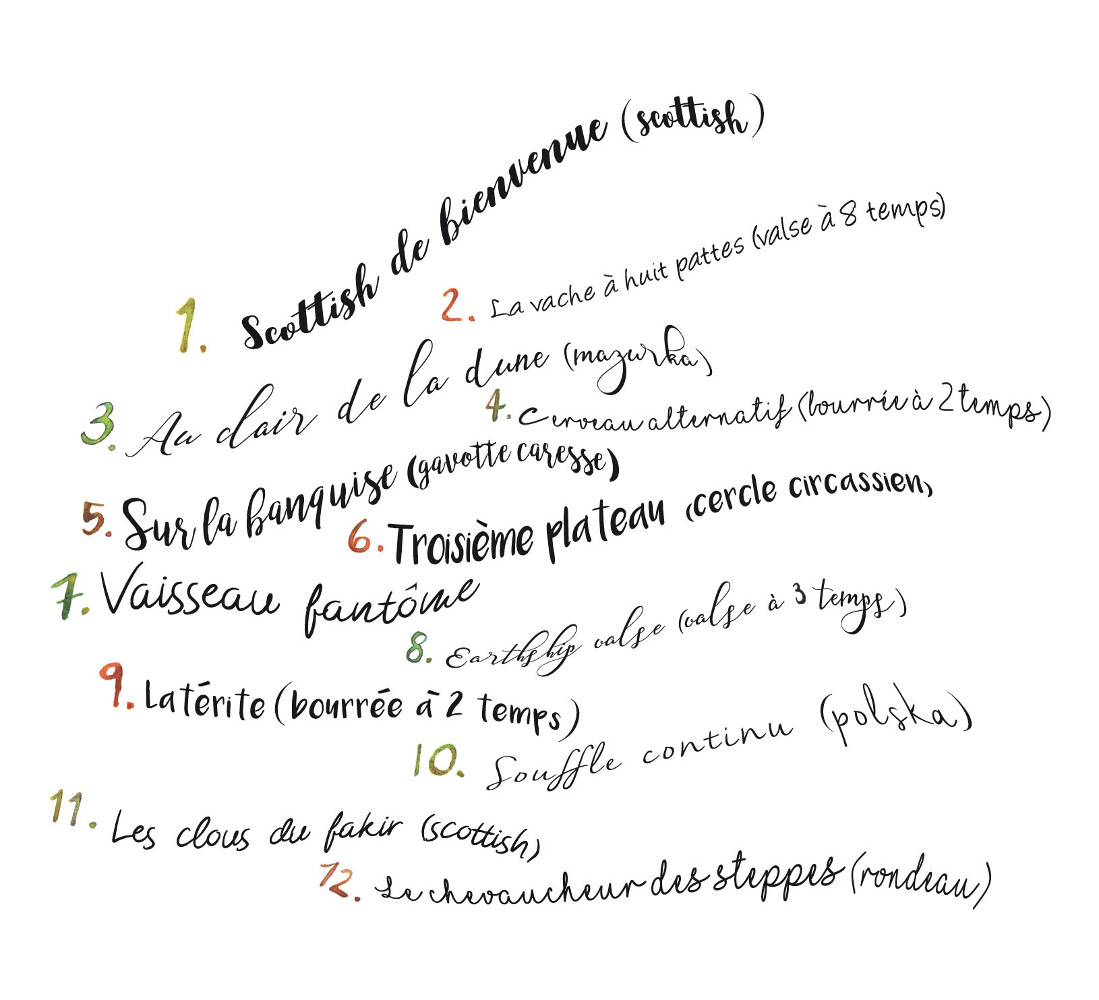 1. Scottish de bienvenue (scottish)
2. La vache à huit pattes (valse à 8 temps)
3. Au clair de la dune (mazurka)
4. Cerveau alternatif (bourrée à 2 temps)
5. Sur la banquise (gavotte caresse)
6. Troisième plateau (cercle circassien)
7. Vaisseau fantôme
8. Earthship valse (valse à 3 temps)
9. Latérite (bourrée à 2 temps)
10. Souffle continu (polska)
11. Les clous du fakir (scottish)
12. Le chevaucheur des steppes (rondeau)